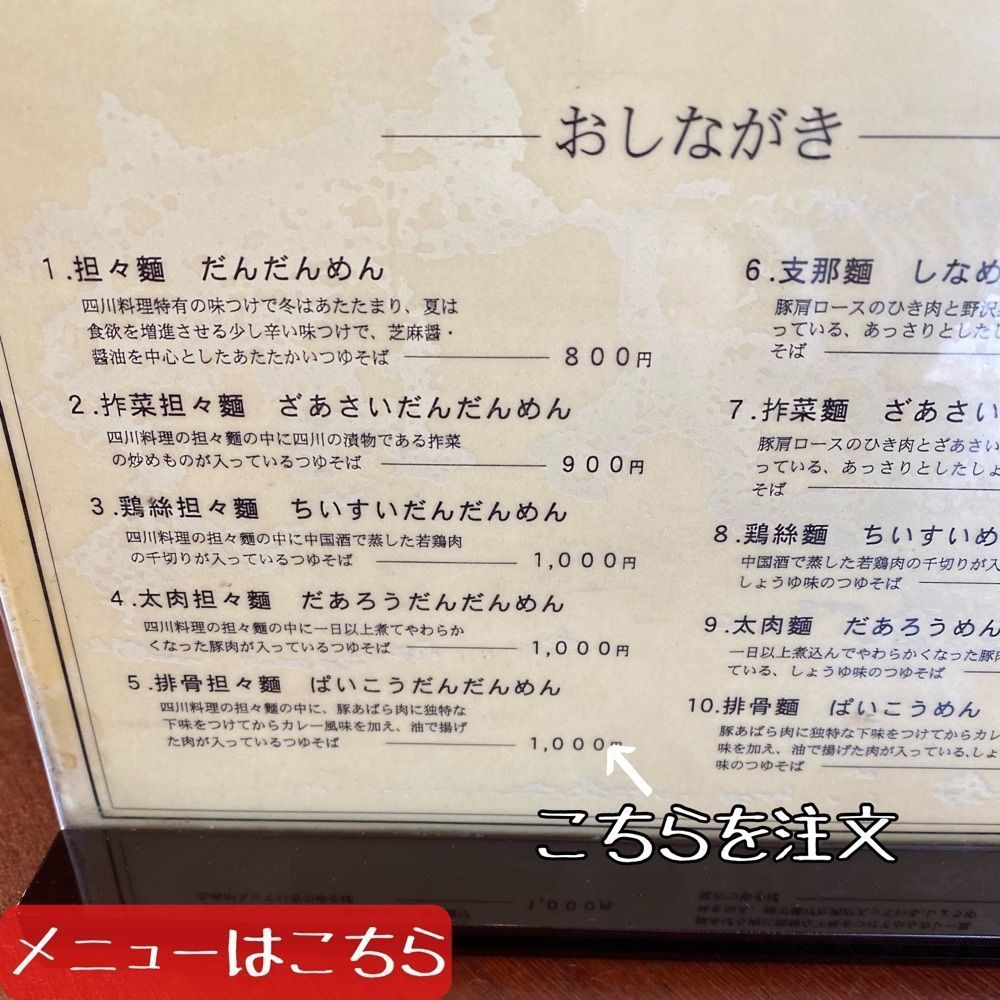 おしながき
1.担々麺 だんだんめん
四川料理特有の味つけで冬はあたたまり、夏は
食欲を増進させる少し辛い味つけで、芝麻醤・
醤油を中心としたあたたかいつゆそば 800円
2.搾菜担々麺 ざあさいだんだんめん
四川料理の担々麺の中に四川の漬物である搾菜
の炒めものが入っているつゆそば 900円
3.鶏絲担々麺 ちいすいだんだんめん
四川料理の担々麺の中に中国酒で蒸した若鶏肉
の千切りが入っているつゆそば 1,000円
4.太肉担々麺 だあろうだんだんめん
四川料理の担々麺の中に一日以上煮てやわらか
くなった豚肉が入っているつゆそば 1,000円
5.排骨担々麺 ぱいこうだんだんめん
四川料理の担々麺の中に、豚あばら肉に独特な
下味をつけてからカレー風味を加え、油で揚げ
た肉が入っているつゆそば 1,000円
6.支那麺 しなめ
豚肩ロースのひき肉と野沢
っている、あっさりとしたし
そば
7.搾菜麺 ざあさい
豚肩ロースのひき肉とざあさい
っている、あっさりとしたしょ
そば
8.鶏絲麺 ちいすいめ
中国酒で蒸した若鶏肉の千切りが入
しょうゆ味のつゆそば
9.太肉麺 だあろうめん
一日以上煮込んでやわらかくなった豚肉
ている、しょうゆ味のつゆそば
10.排骨麺 ぱいこうめん
豚あばら肉に独特な下味をつけてからカレ
味を加え、油で揚げた肉が入っている、しょ
味のつゆそば
こちらを注文
メニューはこちら